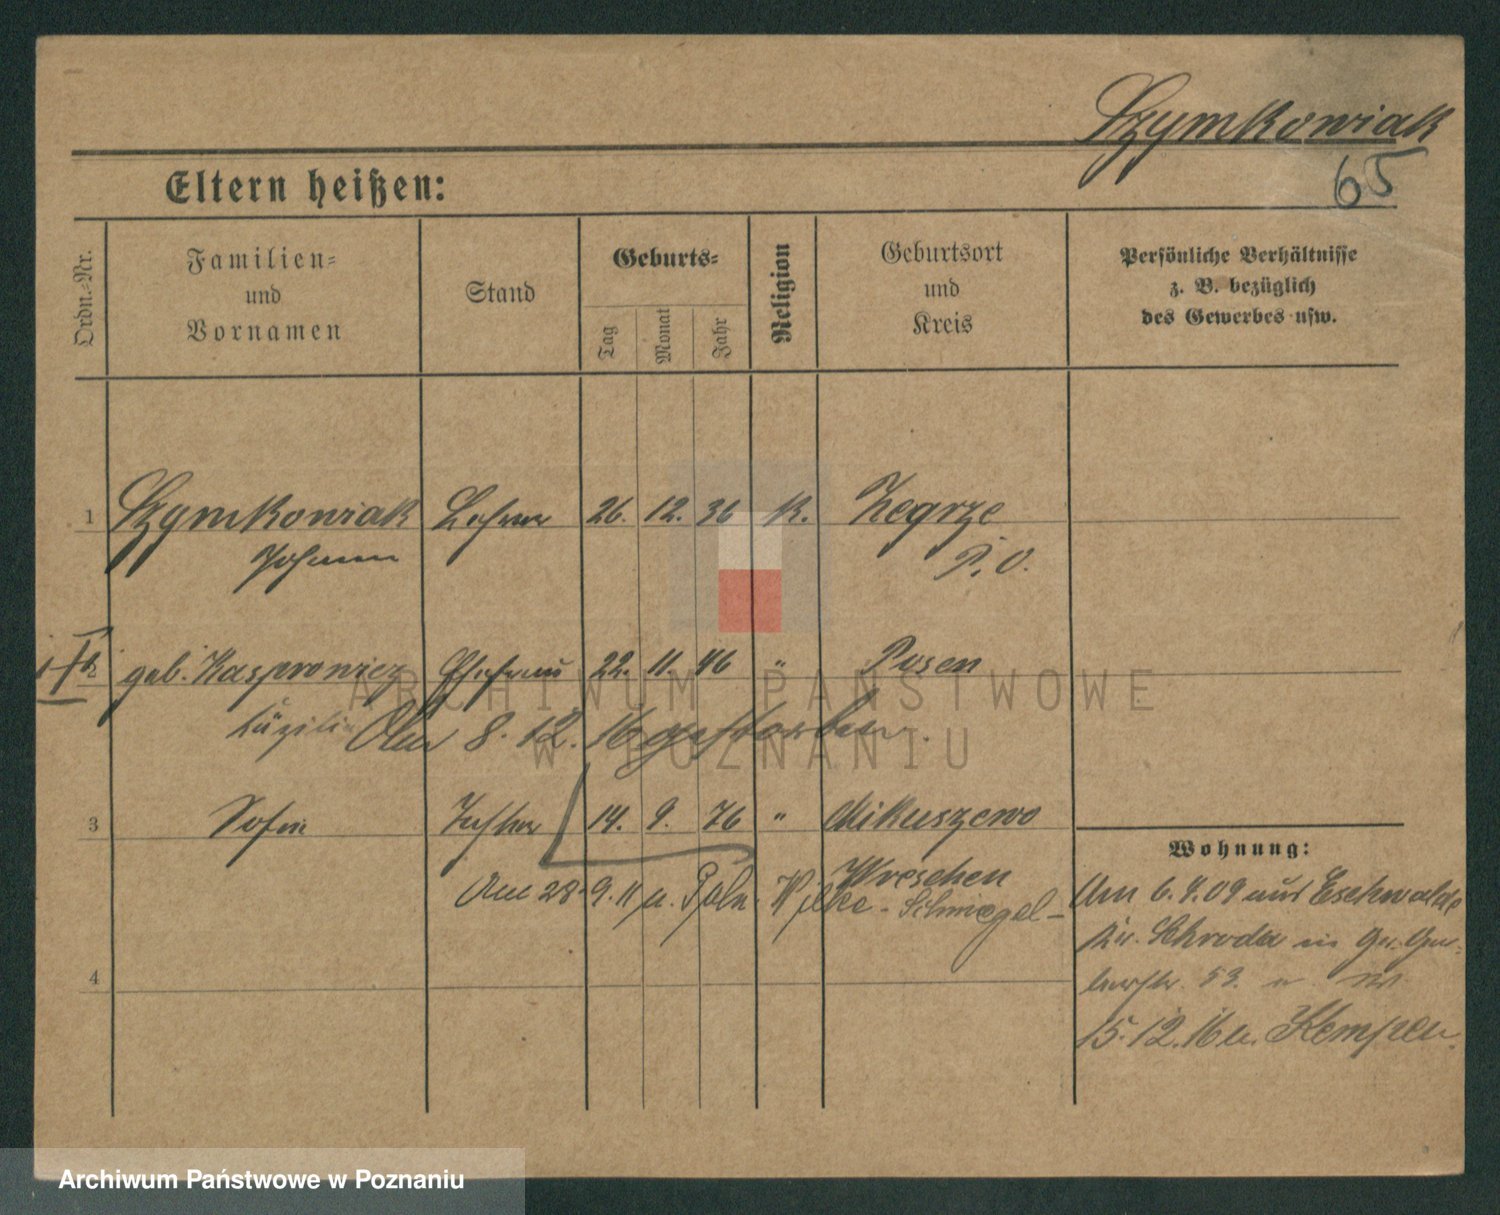 Szymkowiak
65
Eltern heißen:
Ordn.-Nr.
Familien-
und
Vornamen
Stand
Geburts-
Tag
Monat
Jahr
Religion
Geburtsort
und
Kreis
Persönliche Verhältnisse
z. B. bezüglich
des Gewerbes usw.
1 Szymkowiak Lehrer 26. 12. 36 K. Zegrze
Johann P. O.
geb. Kasprowicz Ehefrau 22. 11. 46 " Posen
Cäzilie Am 8. 12. 16 gestorben.
3 Sofie Tochter 14. 9. 76 " Mikuszewo
Wreschen
Am 28. 9. 11 n. Poln. Wilke - Schmiegel -
4
Wohnung:
Am 6. 4. 09 aus Eschwalde
Kr. Schroda in Gr. Ger-
berstr. 53.
15. 12. 16 n. Kempen.
ARCHIWUM PAŃSTWOWE
W POZNANIU
Archiwum Państwowe w Poznaniu